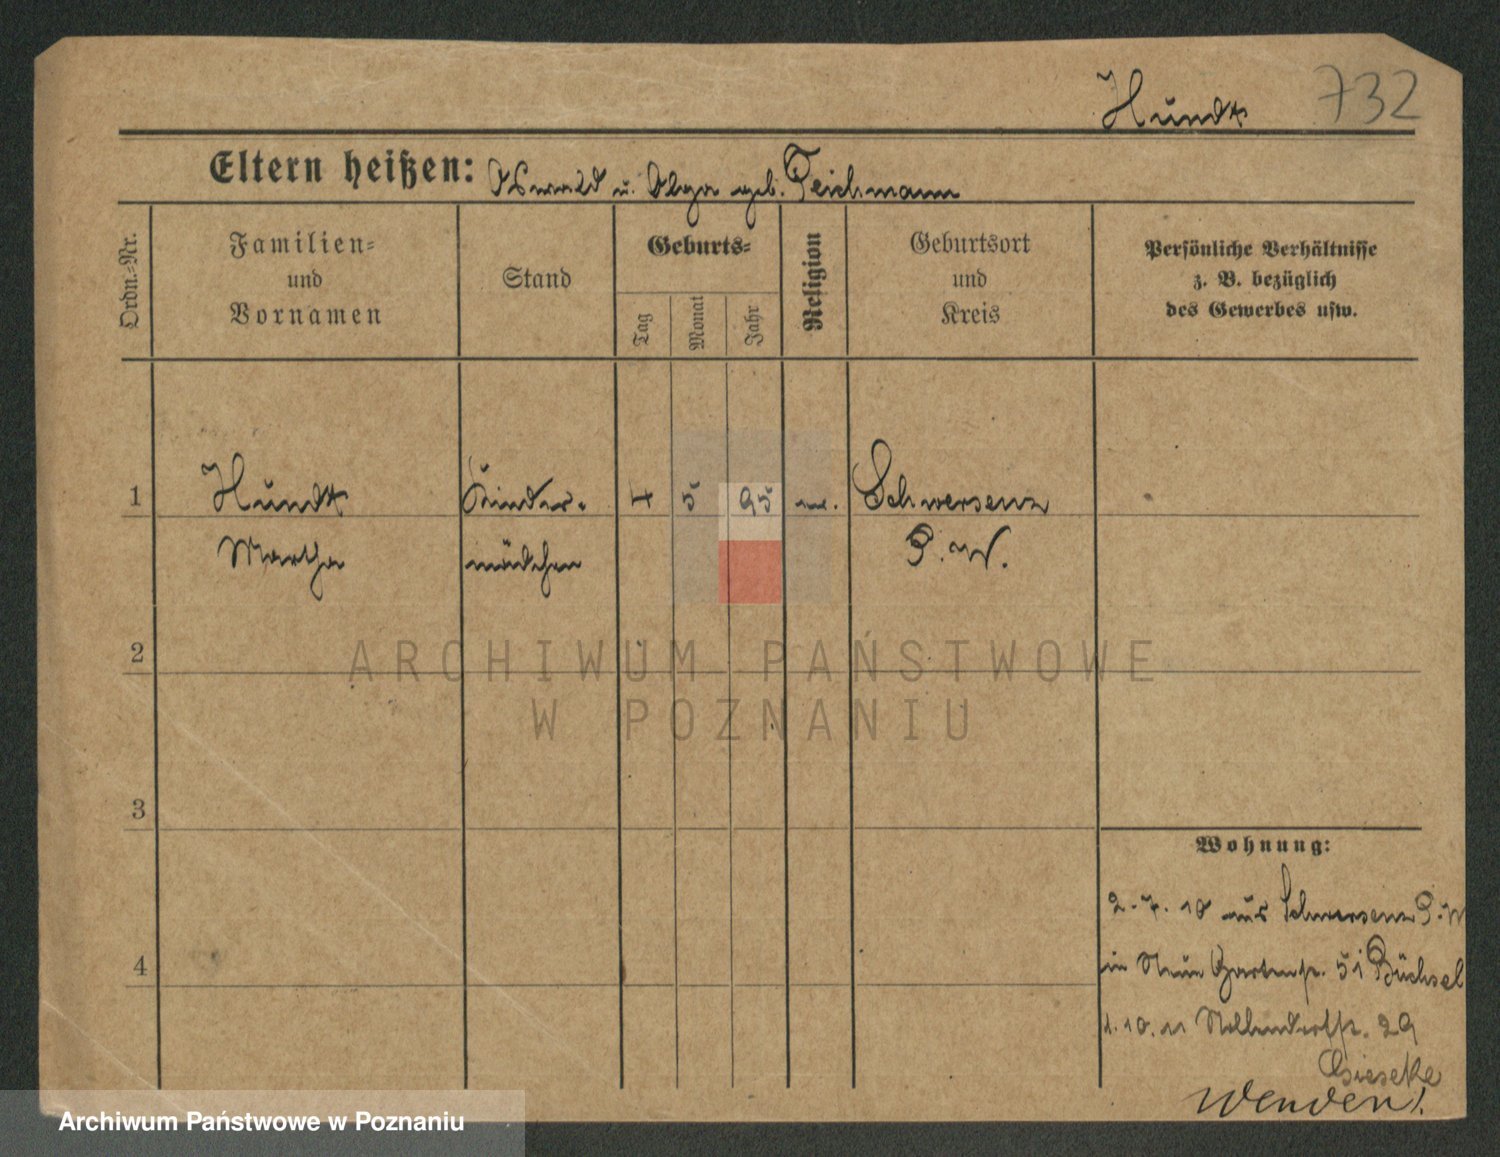 Hundt 732
Eltern heißen: Oswald u. Olga geb. Teichmann
Ordn.-Nr.
Familien-
und
Vornamen
Stand
Geburts-
Tag
Monat
Jahr
Religion
Geburtsort
und
Kreis
Persönliche Verhältnisse
z. B. bezüglich
des Gewerbes usw.
1 Hundt Kinder- 4 5 95 Schwersenz
Martha mädchen P. W.
2
ARCHIWUM PAŃSTWOWE
W POZNANIU
3
Wohnung:
2.7.10 aus Schwersenz P. W
in Neue Gartenstr. 51 Büchsel
4
1.10.11 Nollendorfstr. 29
Gieseke
Wenden!
Archiwum Państwowe w Poznaniu